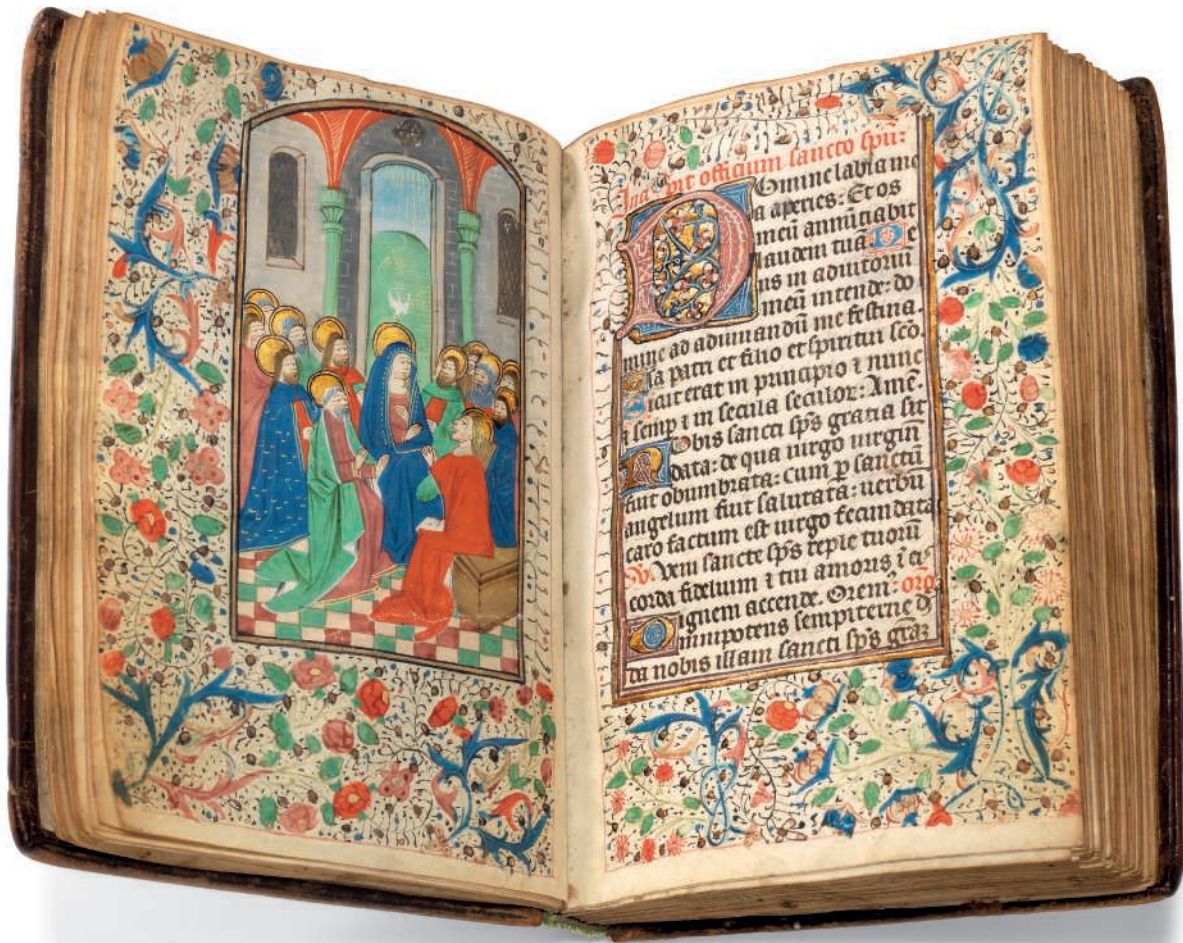 Incipit officium sancto spū:
Domine labia me
a aperies: Et os
meū annūtiabit
laudem tuā. De
us in adiutoriū
meū intende: do
mine ad adiuuandū me festina.
Gla patri et filio et spiritui scō
Sicut erat in principio ⁊ nunc
⁊ semp ⁊ in secula seculor: Amē.
Nobis sancti sp̄s gratia sit
data: de qua uirgo uirginū
fuit obumbrata: cum p sanctū
angelum fuit salutata: uerbū
caro factum est uirgo fecundata
V. Veni sancte sp̄s reple tuorū
corda fidelium ⁊ tui amoris ī eis
ignem accende. Orem: oro
Omnipotens sempiterne ds
da nobis illam sancti sp̄s grāz